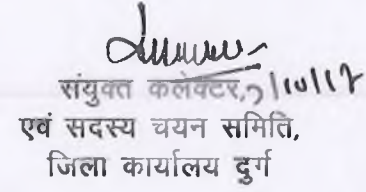 संयुक्त कलेक्टर, 7/10/17
एवं सदस्य चयन समिति,
जिला कार्यालय दुर्ग